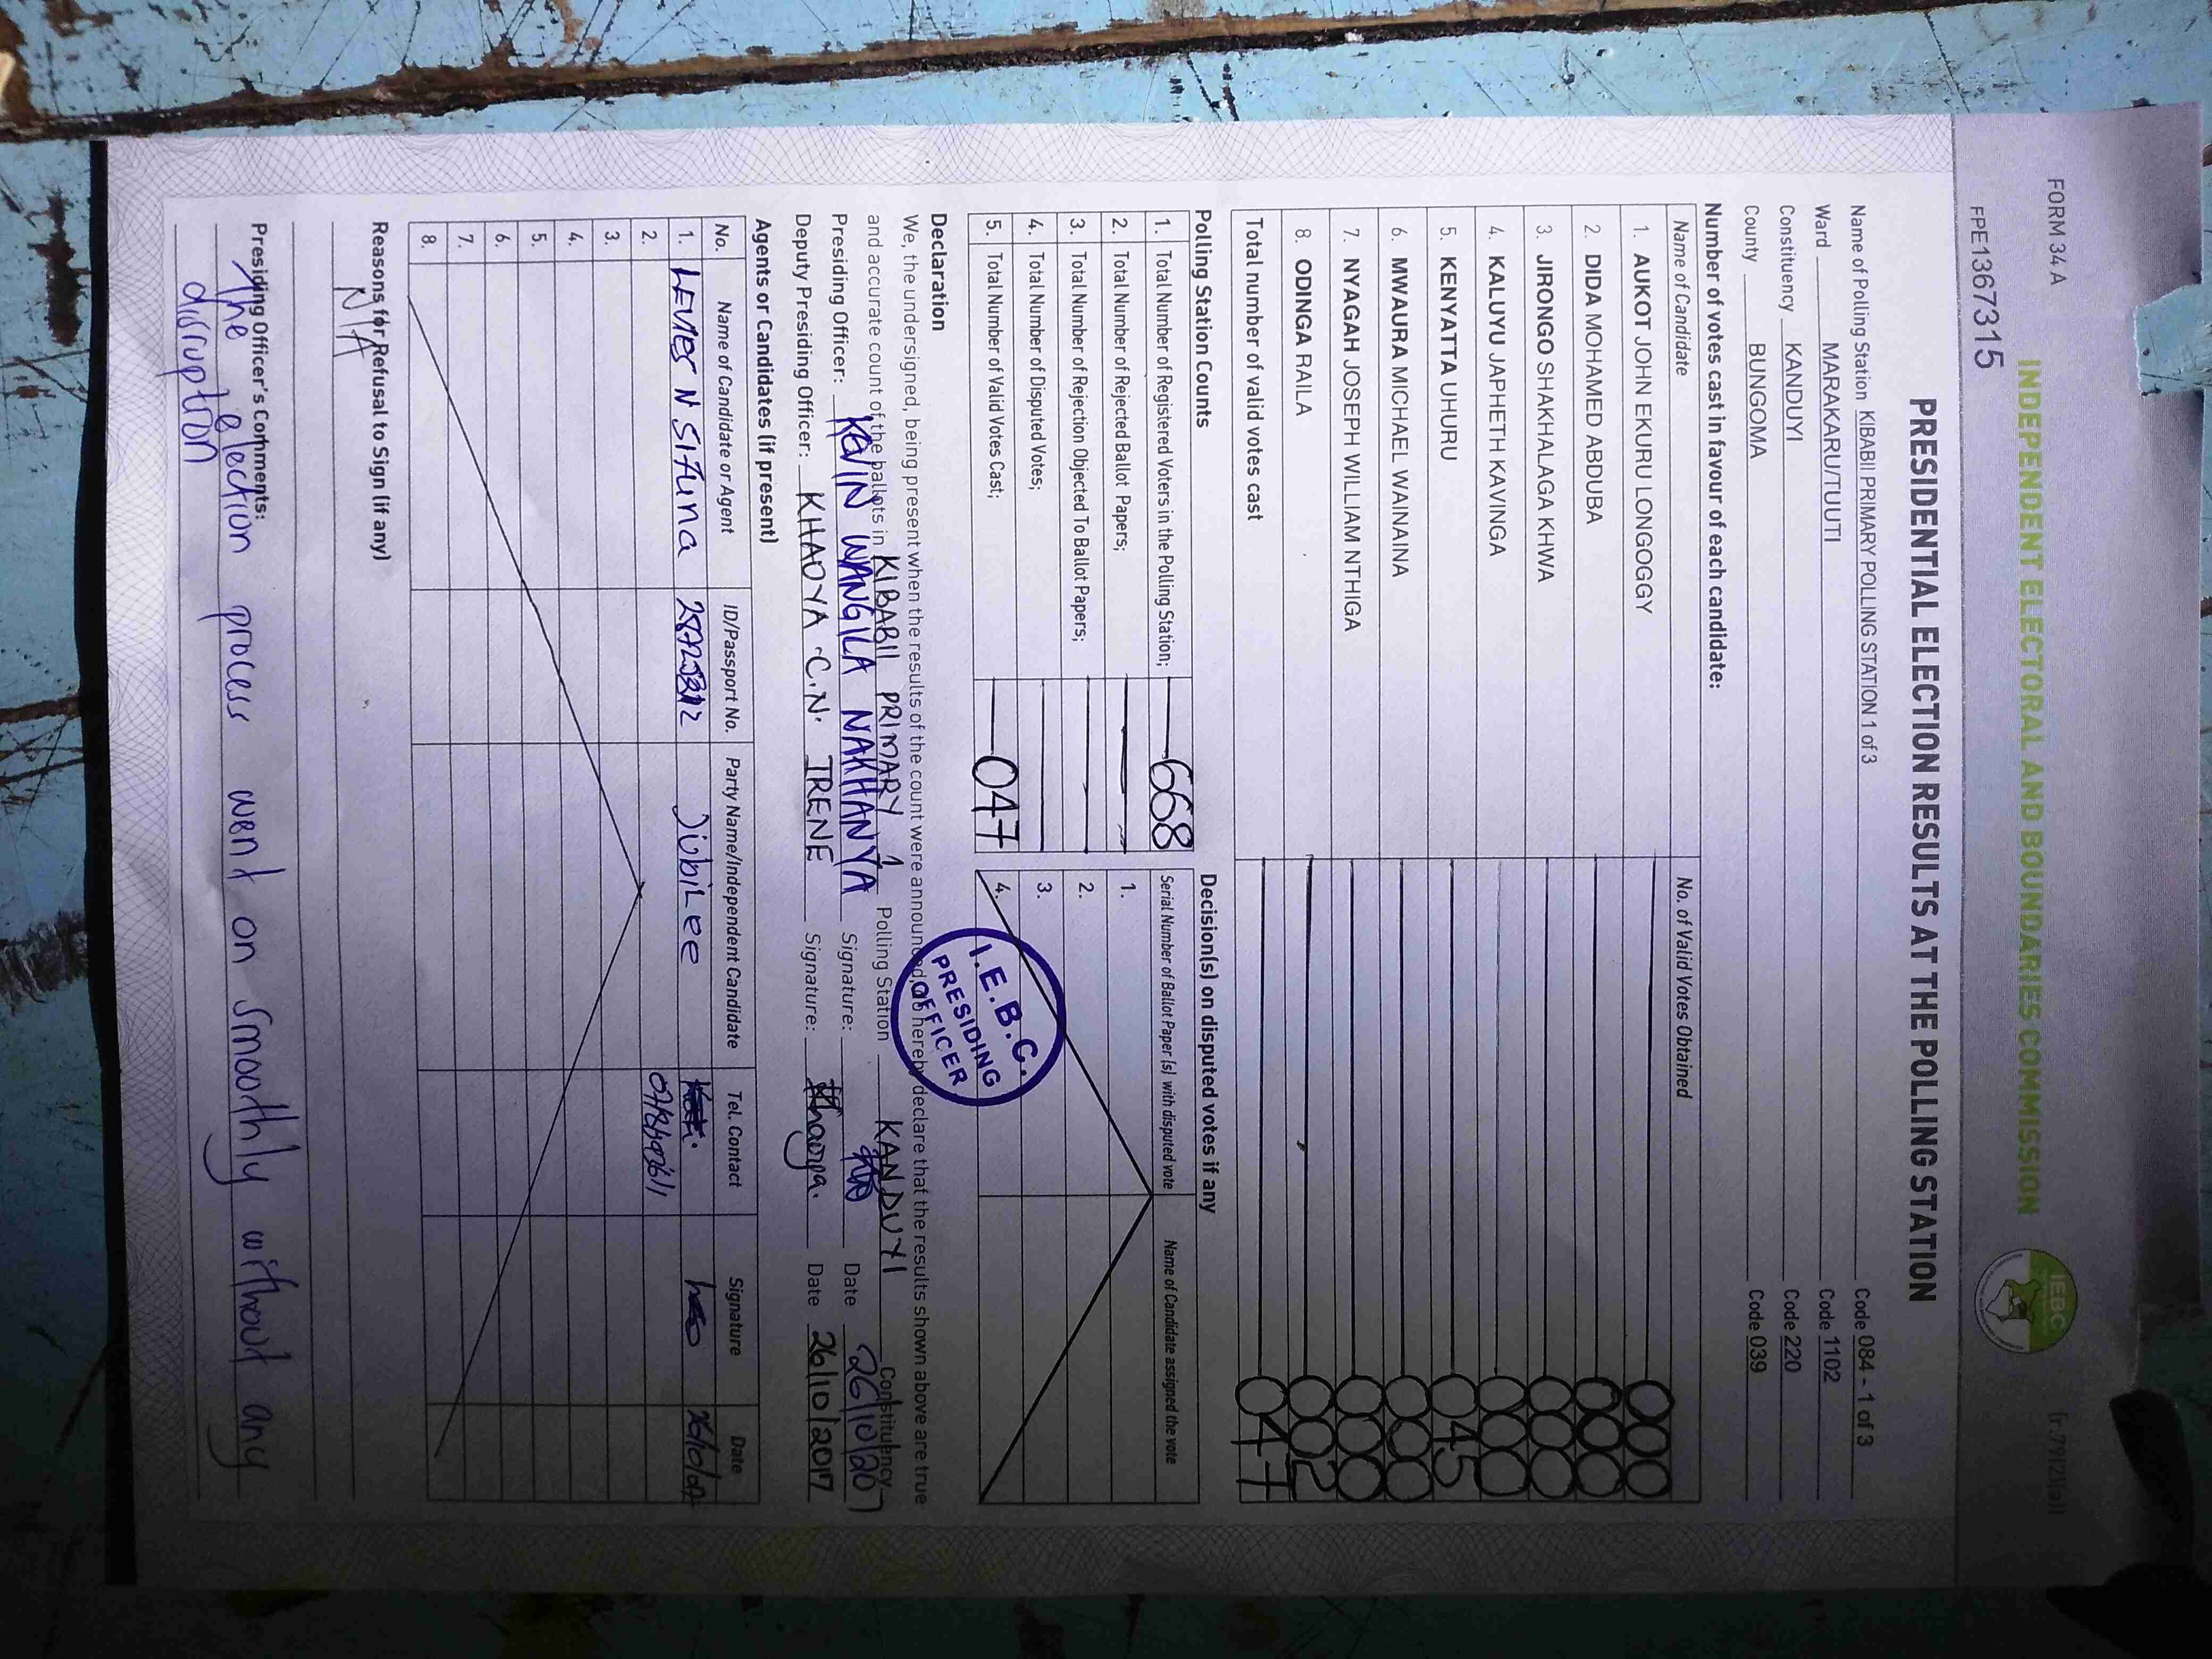 FORM 34 A
(r.79(2)(a))
INDEPENDENT ELECTORAL AND BOUNDARIES COMMISSION
IEBC
FPE1367315
PRESIDENTIAL ELECTION RESULTS AT THE POLLING STATION
Name of Polling Station KIBABII PRIMARY POLLING STATION 1 of 3 Code 084 - 1 of 3
Ward MARAKARU/TUUTI Code 1102
Constituency KANDUYI Code 220
County BUNGOMA Code 039
Number of votes cast in favour of each candidate:
Name of Candidate No. of Valid Votes Obtained
1. AUKOT JOHN EKURU LONGOGGY 000
2. DIDA MOHAMED ABDUBA 000
3. JIRONGO SHAKHALAGA KHWA 000
4. KALUYU JAPHETH KAVINGA 000
5. KENYATTA UHURU 045
6. MWAURA MICHAEL WAINAINA 000
7. NYAGAH JOSEPH WILLIAM NTHIGA 000
8. ODINGA RAILA 002
Total number of valid votes cast 047
Polling Station Counts
1. Total Number of Registered Voters in the Polling Station; 668
2. Total Number of Rejected Ballot Papers;
3. Total Number of Rejection Objected To Ballot Papers;
4. Total Number of Disputed Votes;
5. Total Number of Valid Votes Cast; 047
Decision(s) on disputed votes if any
Serial Number of Ballot Paper (s) with disputed vote Name of Candidate assigned the vote
1.
2.
3.
4.
I.E.B.C.
PRESIDING
OFFICER
Declaration
We, the undersigned, being present when the results of the count were announced, do hereby declare that the results shown above are true
and accurate count of the ballots in KIBABII PRIMARY 1 Polling Station KANDUYI Constituency
Presiding Officer: KEVIN WANGILA NAKHANYA Signature: Date 26/10/2017
Deputy Presiding Officer: KHAOYA .C.N. IRENE Signature: Khaoya. Date 26/10/2017
Agents or Candidates (if present)
No. Name of Candidate or Agent ID/Passport No. Party Name/Independent Candidate Tel. Contact Signature Date
1. LEVIES N SIFUNA JUBILEE
2.
3.
4.
5.
6.
7.
8.
Reasons for Refusal to Sign (if any)
N/A
Presiding Officer's Comments:
The election process went on smoothly without any
disruption